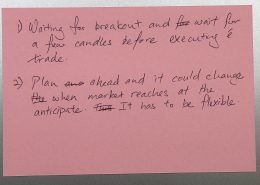 1) Waiting for breakout and wait for
a few candles before executing é
trade.
2) Plan ahead and it could change
when market reaches at the
anticipate. It has to be flexible.